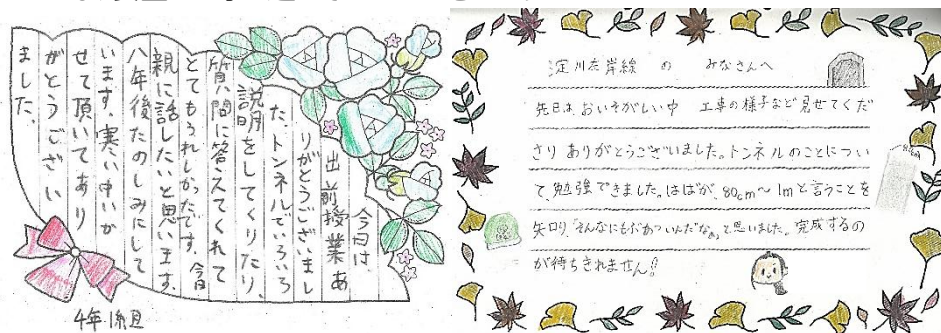 今日は
出前授業あ
りがとうございまし
た。トンネルでいろいろ
説明をしてくりたり、
質問に答えてくれて
とてもうれしかったです。今日
親に話したいと思います。
八年後たのしみにして
います。寒い中いか
せて頂いてあり
がとうござい
ました。
4年
淀川左岸線 の みなさんへ
先日は、おいそがしい中 工事の様子など見せてくだ
さり ありがとうございました。トンネルのことについ
て勉強できました。はばが、80cm〜1mと言うことを
知り「そんなにもぶあついんだなぁ」と思いました。完成するの
が待ちきれません!!